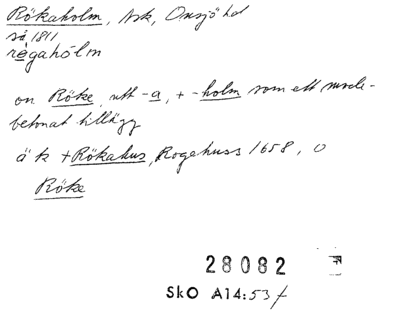 Rökaholm, Ask, Onsjö hd
så 1811
rø̀gahòlm
on Röke, utt -a, + -holm som ett nurde-
betonat tillägg
äk +Rökahus, Rogehuss 1658, o
Röke
28082
SkO A14:53